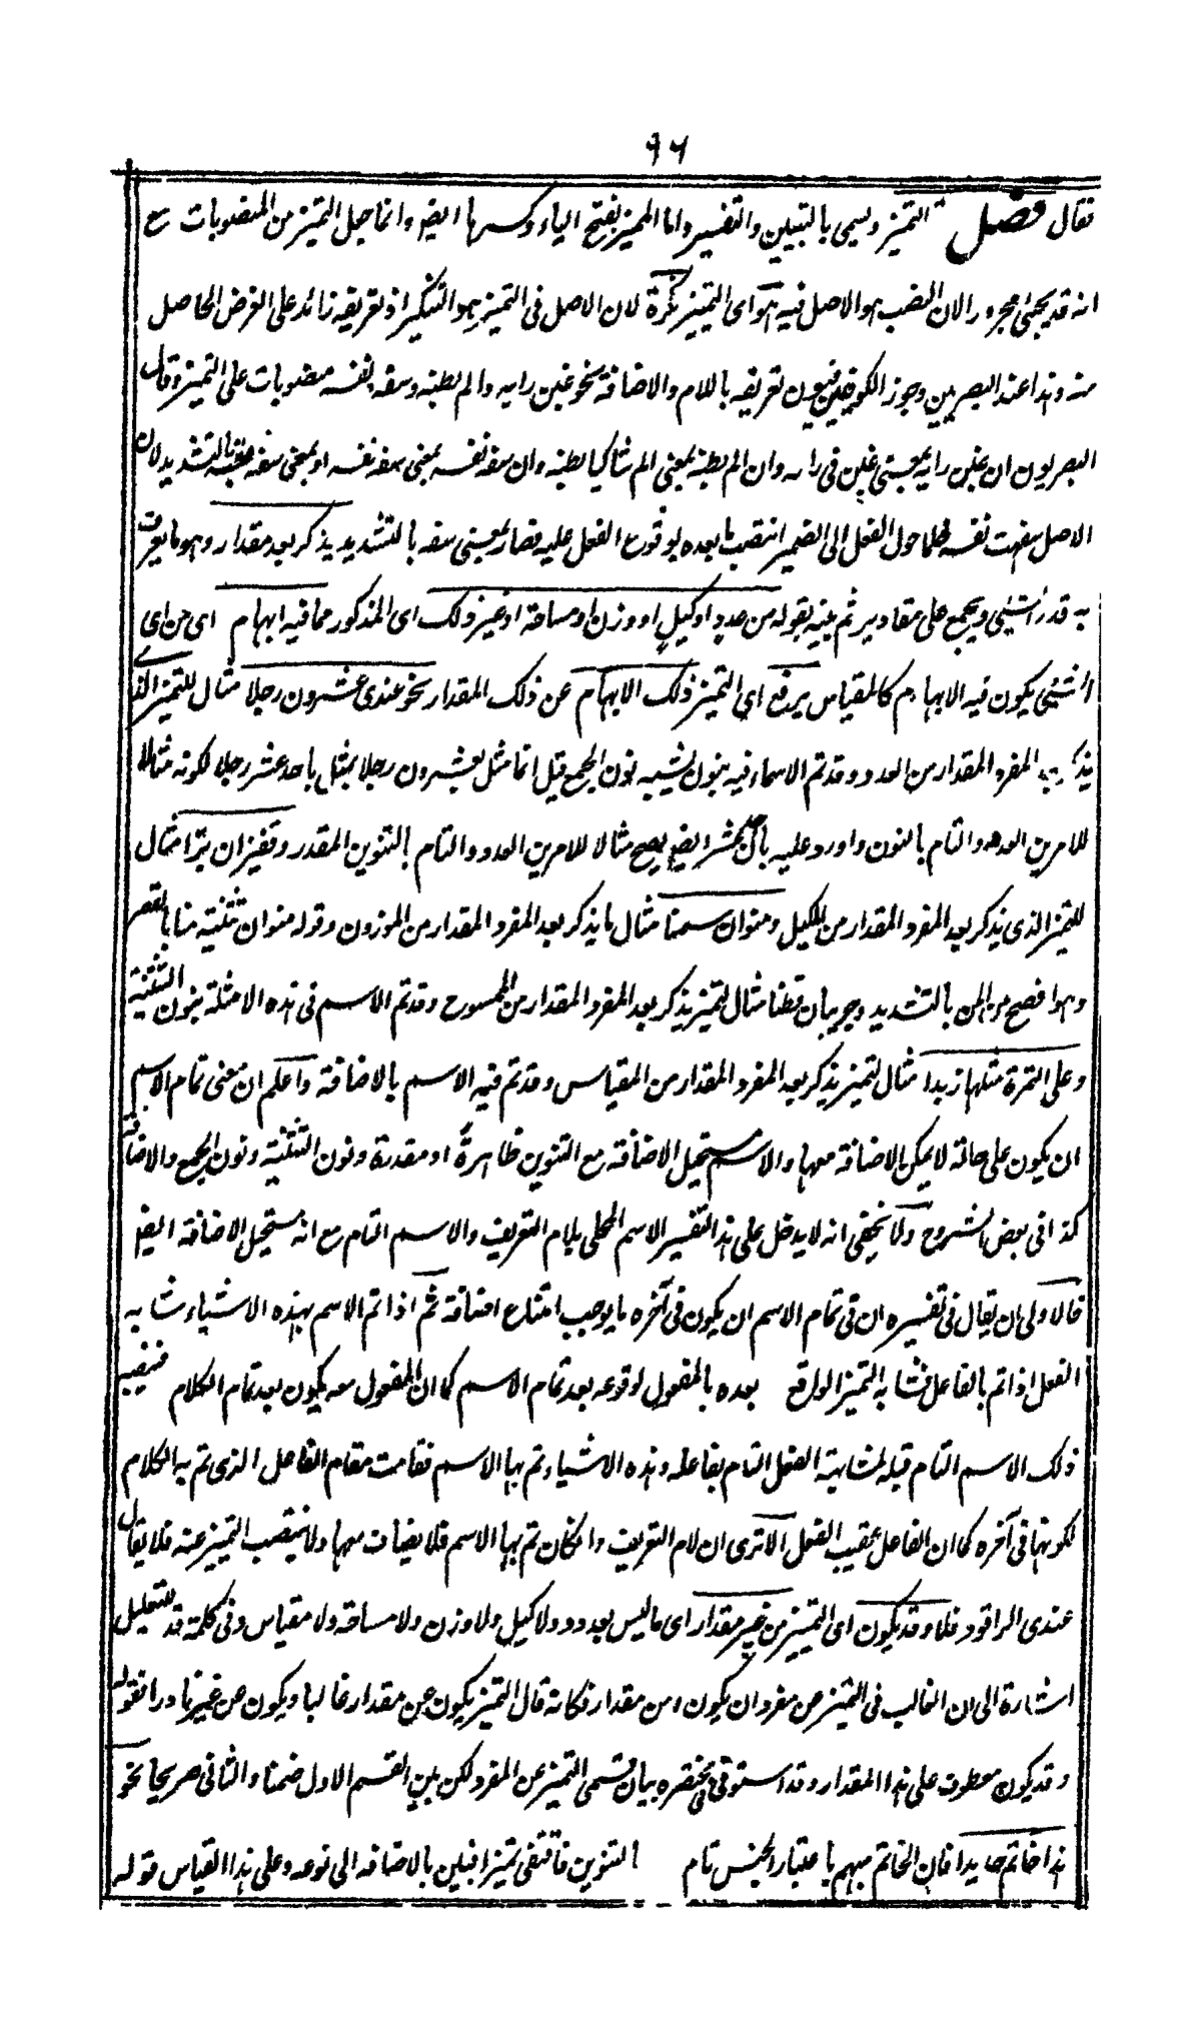 ٩٦
فقال فصل التميز ويسمى بالتبيين والتفسير واما المميز بفتح الياء وكسرها ايضو وانما جعل التميز من المنصوبات مع
انه قد يجئ مجرورا لان النصب هو الاصل فيه هو اى التميز نكرة لان الاصل فى التميز هو التنكير اذ تعريفه زائد على الغرض الحاصل
منه وهذا عند البصريين وجوز الكوفيون تعريفه باللام والاضافة نحو غبن رايه والم بطنه وسفه نفسه منصوبات على التميز وقال
البصريون ان غبن رايه بمعنى غبن فى رايه وان الم بطنه بمعنى الم شاكيا بطنه وان سفه نفسه بمعنى سفه نفسه او بمعنى سفه بالتشديد لان
الاصل سفهت نفسه فلما حول الفعل الى الضمير انتصب ما بعده بوقوع الفعل عليه فصار بمعنى سفه بالتشديد يذكر بعد مقدار وهو ما يعرف
به قدر الشئ ويجمع على مقادير ثم بينه بقوله من عدد او كيل او وزن او مساحة او غير ذلك اى المذكور مما فيه ابهام اى من اى
شئ يكون فيه الابهام كالمقياس يرفع اى التميز ذلك الابهام عن ذلك المقدار نحو عندى عشرون رجلا مثال للتميز الذى
يذكر بعد المفرد المقدار من العدد وقد تم الاسماء فيه بنون شبيه نون الجمع قيل انما مثل بعشرون رجلا لم يمثل باحد عشر رجلا لكونه مثالا
للامرين العدد والتام بالنون واورد عليه بان عشر ايضو يصح مثالا للامرين العدد والتام بالتنوين المقدر وقفيزان برا مثال
للتميز الذى يذكر بعد المفرد المقدار من الكيل ومنوان سمنا مثال ما يذكر بعد المفرد المقدار من الموزون وقوله منوان تثنية منا بالقصر
وهو افصح من المن بالتشديد وجريبان قطنا مثال لتميز يذكر بعد المفرد المقدار من الممسوح وقد تم الاسم فى هذه الامثلة بنون التثنية
وعلى التمرة مثلها زبدا مثال لتميز يذكر بعد المفرد المقدار من المقياس وقد تم فيه الاسم بالاضافة واعلم ان معنى تمام الاسم
ان يكون على حالة لا يمكن الاضافة معها والاسم مستحيل الاضافة مع التنوين ظاهرة او مقدرة ونون التثنية ونون الجمع والاضافة
كذا فى بعض الشروح ولا يخفى انه لا يدخل على هذا التفسير الاسم المحلى بلام التعريف والاسم التام مع انه مستحيل الاضافة ايضو
فالاولى ان يقال فى تفسيره ان فى تمام الاسم ان يكون فى آخره ما يوجب امتناع اضافة ثم اذا تم الاسم بهذه الاشياء شابه
الفعل اذا تم بالفاعل فشابه التميز الواقع بعده بالمفعول لوقوعه بعد تمام الاسم كما ان المفعول معه يكون بعد تمام الكلام فينصبه
ذلك الاسم التام قبله لمشابهته الفعل التام بفاعله وهذه الاشياء تم بها الاسم فقامت مقام الفاعل الذى تم به الكلام
لكونها فى آخره كما ان الفاعل عقيب الفعل الا ترى ان لام التعريف وان كان تم بها الاسم فلا يضاف معها ولا ينتصب التميز عنه فلا يقال
عندى الراقود خلا وقد يكون اى التميز من غير مقدار اى ما ليس بعدد ولا كيل ولا وزن ولا مساحة ولا مقياس وفى كلمة قد للتقليل
اشارة الى ان الغالب فى التميز عن مفرد ان يكون من مقدار فكانه قال التميز يكون عن مقدار غالبا ويكون عن غيرها نادرا فقوله
وقد يكون معطوف على هذا المقدار وقد استوفى فى مختصره بيان قسمى التميز عن المفرد لكن بين القسم الاول ضمنا والثانى صريحا نحو
هذا خاتم حديدا فان الخاتم مبهم باعتبار الجنس تام التنوين فاقتضى تميزا فبين بالاضافة الى نوعه وعلى هذا القياس قوله